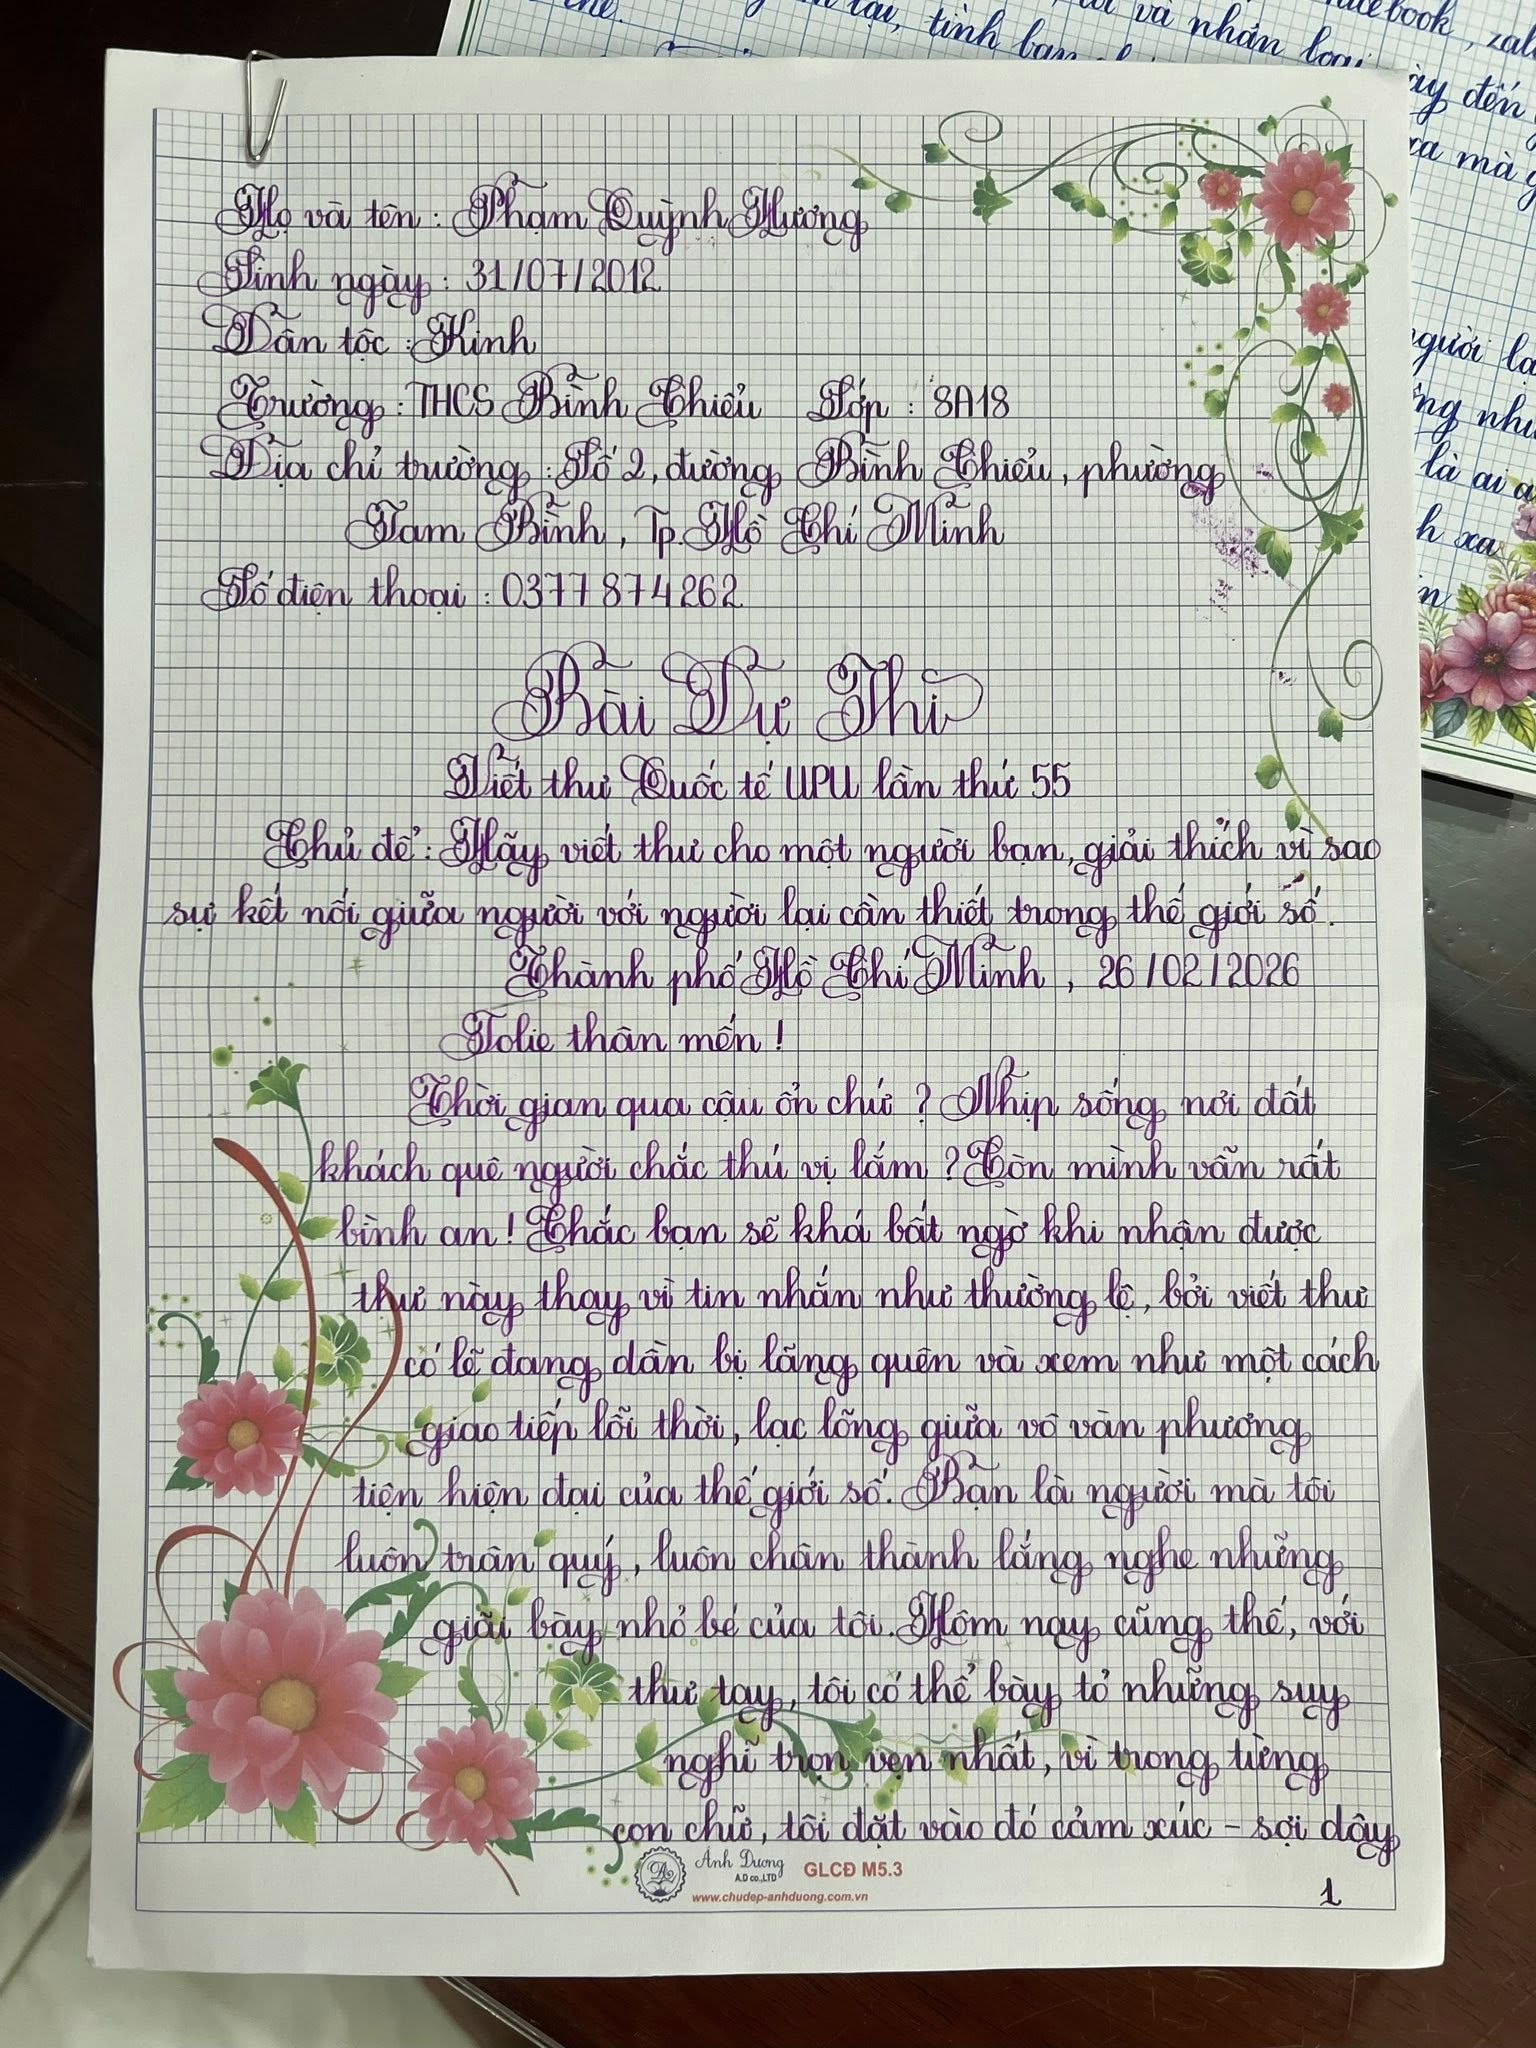 Họ và tên : Phạm Quỳnh Hương
Sinh ngày : 31/07/2012
Dân tộc : Kinh
Trường : THCS Bình Chiểu Lớp : 8A18
Địa chỉ trường : Số 2, đường Bình Chiểu, phường
Tam Bình, Tp. Hồ Chí Minh
Số điện thoại : 0377874262
Bài Dự Thi
Viết thư Quốc tế UPU lần thứ 55
Chủ đề : Hãy viết thư cho một người bạn, giải thích vì sao
sự kết nối giữa người với người lại cần thiết trong thế giới số.
Thành phố Hồ Chí Minh, 26/02/2026
Jolie thân mến !
Thời gian qua cậu ổn chứ ? Nhịp sống nơi đất
khách quê người chắc thú vị lắm ? Còn mình vẫn rất
bình an ! Chắc bạn sẽ khá bất ngờ khi nhận được
thư này thay vì tin nhắn như thường lệ, bởi viết thư
có lẽ đang dần bị lãng quên và xem như một cách
giao tiếp lỗi thời, lạc lõng giữa vô vàn phương
tiện hiện đại của thế giới số. Bạn là người mà tôi
luôn trân quý, luôn chân thành lắng nghe những
giãi bày nhỏ bé của tôi. Hôm nay cũng thế, với
thư tay, tôi có thể bày tỏ những suy
nghĩ trọn vẹn nhất, vì trong từng
con chữ, tôi đặt vào đó cảm xúc - sợi dây
Ánh Dương
A.D co.,LTD
GLCĐ M5.3
www.chudep-anhduong.com.vn
1
facebook, zalo
lại, tình bạn
và nhân loại
này đến
xa mà
người lạ
là ai
h xa